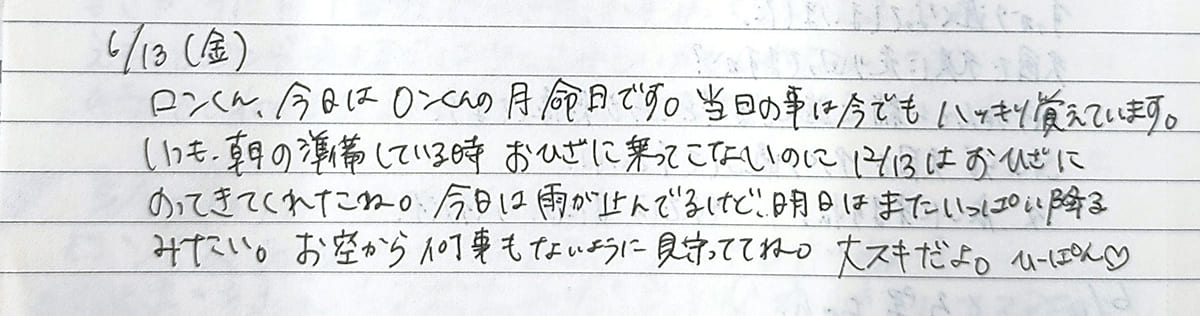 6/13(金)
ロンくん、今日はロンくんの月命日です。当日の事は今でもハッキリ覚えています。
いつも、朝の準備している時おひざに乗ってこないのに12/13はおひざに
のってきてくれたね。今日は雨が止んでるけど、明日はまたいっぱい降る
みたい。お空から何事もないように見守っててね。大スキだよ。ひーぽん♡